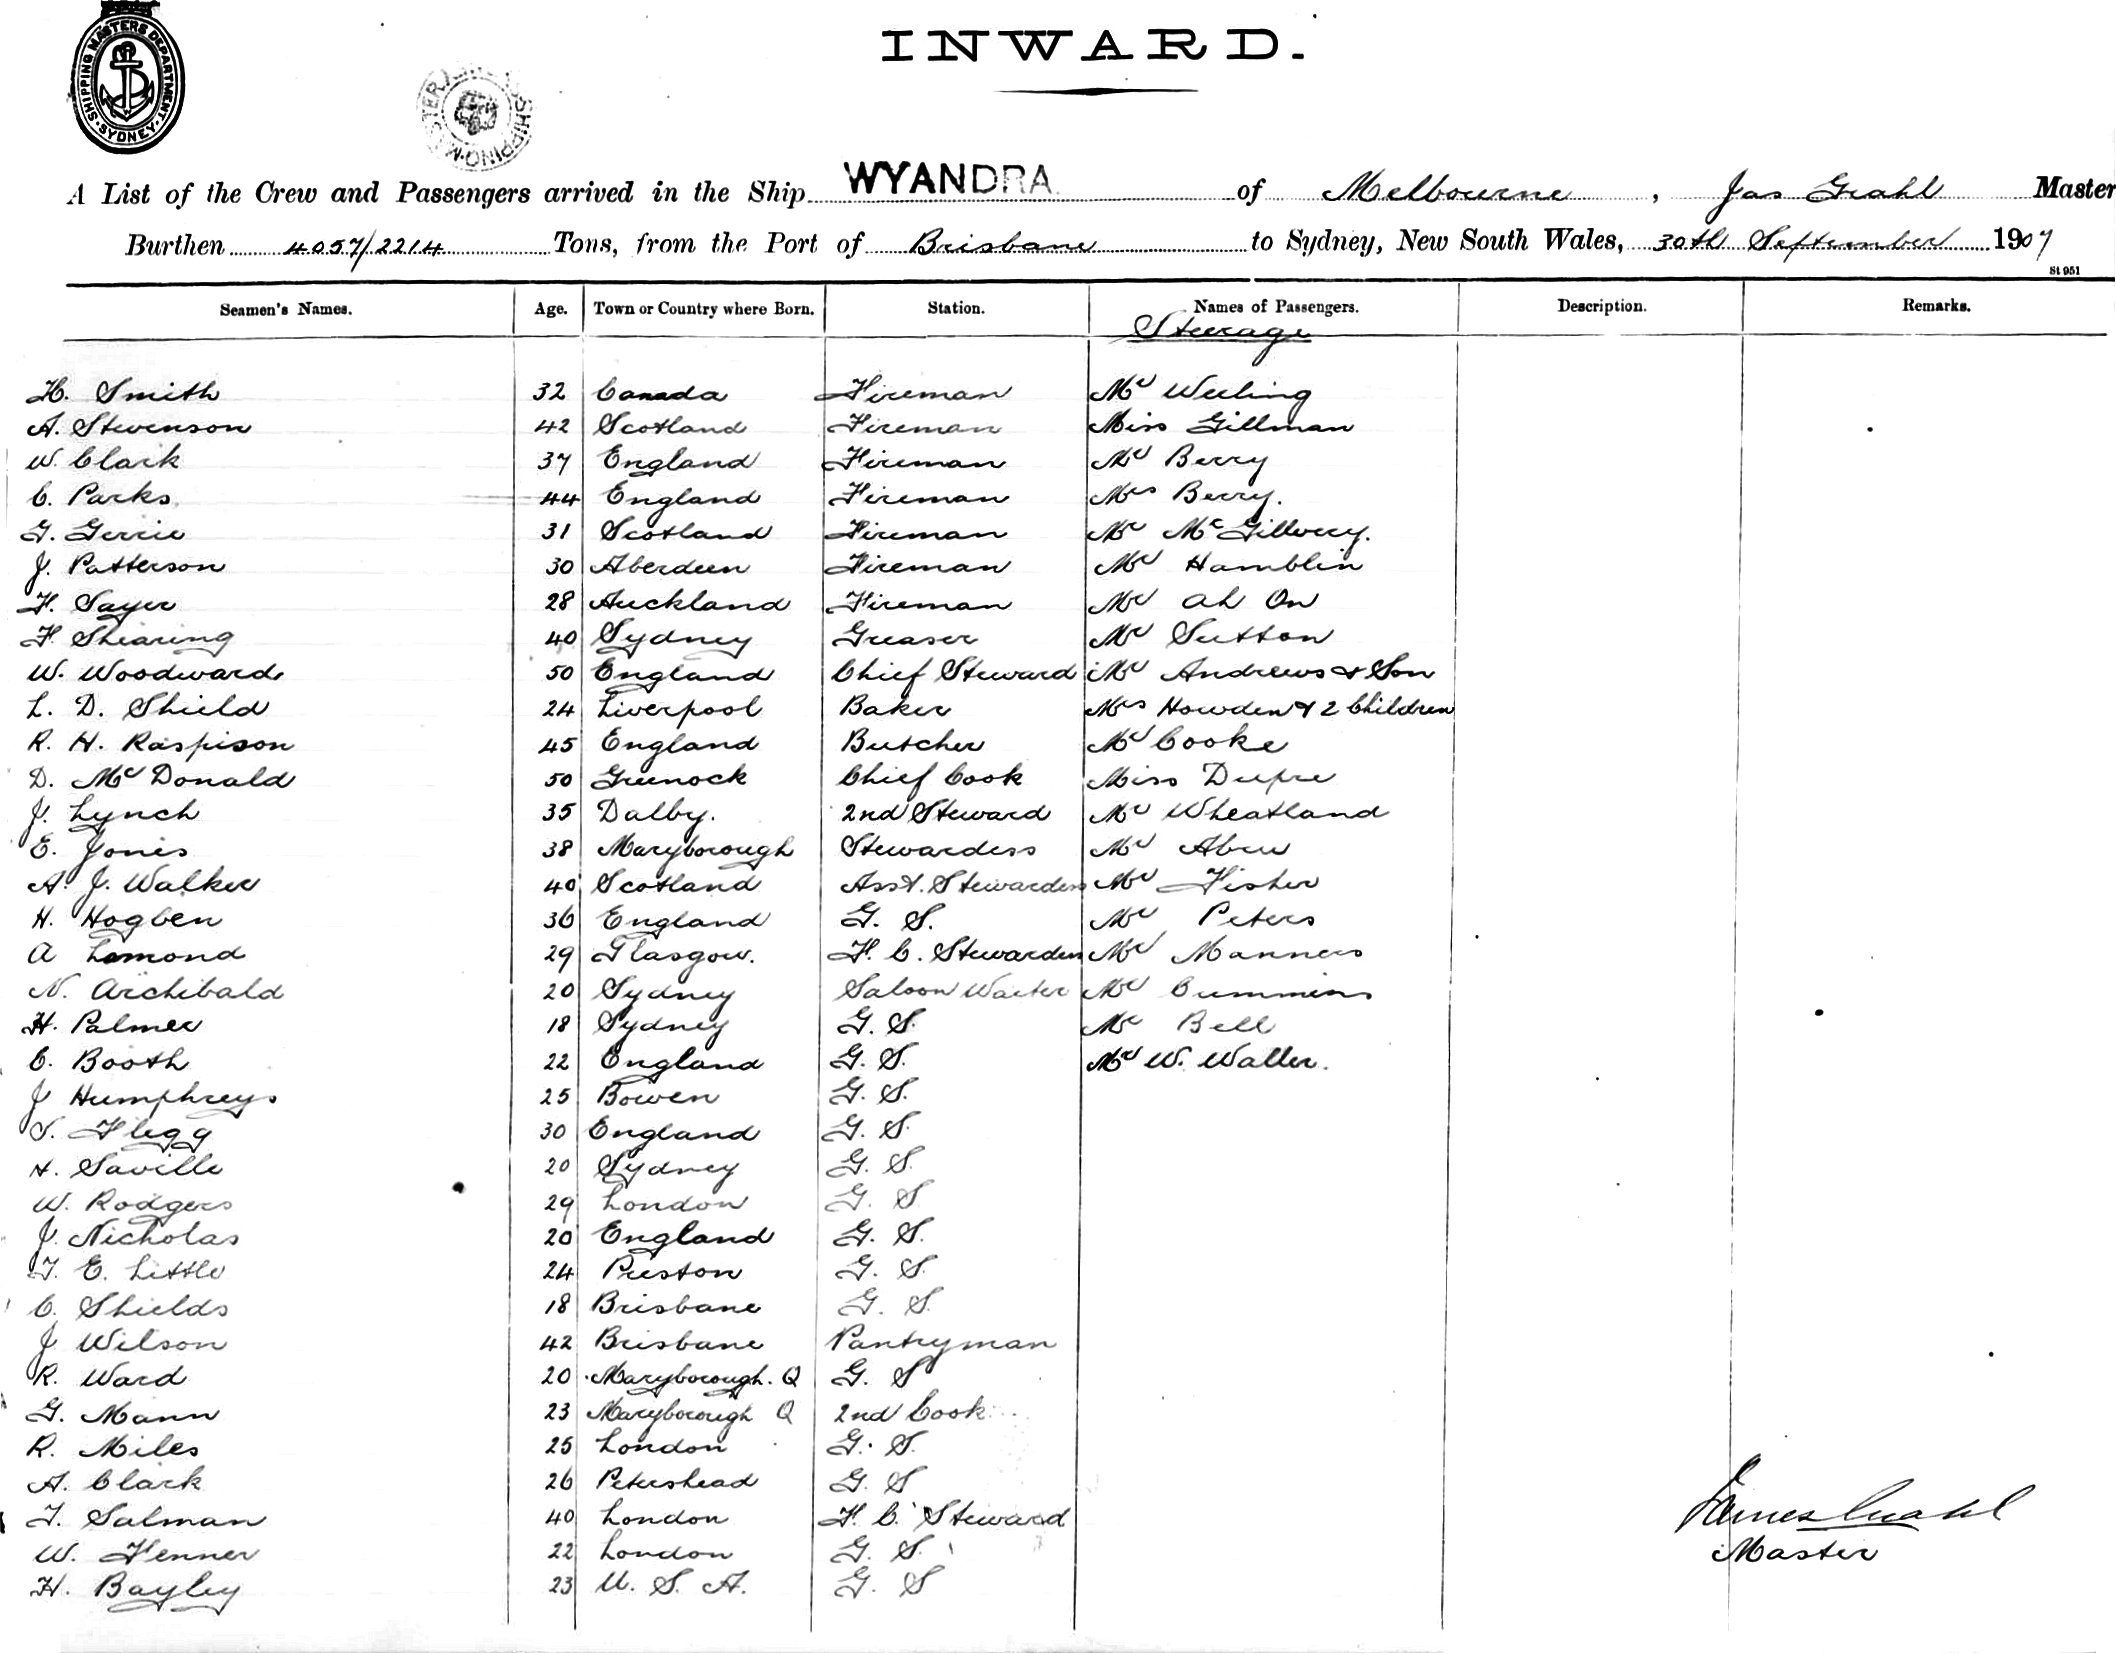 SHIPPING MASTERS DEPARTMENT. SYDNEY.
INWARD.
A List of the Crew and Passengers arrived in the Ship WYANDRA of Melbourne, Jas Grahl Master
Burthen 4057/2214 Tons, from the Port of Brisbane to Sydney, New South Wales, 30th September 1907
St 951
Seamen's Names. Age. Town or Country where Born. Station. Names of Passengers. Description. Remarks.
Steerage
H. Smith 32 Canada Fireman Mr Weeling
A. Stevenson 42 Scotland Fireman Miss Gillman
W. Clark 37 England Fireman Mr Berry
C. Parks 44 England Fireman Mrs Berry.
G. Gerrie 31 Scotland Fireman Mr McGillvery.
J. Patterson 30 Aberdeen Fireman Mr Hamblin
F. Sayer 28 Auckland Fireman Mr Ah On
F. Shearing 40 Sydney Greaser Mr Sutton
W. Woodward 50 England Chief Steward Mr Andrews & Son
L. D. Shield 24 Liverpool Baker Mrs Howden & 2 Children
R. H. Raspison 45 England Butcher Mr Cooke
D. McDonald 50 Greenock Chief Cook Miss Dupre
J. Lynch 35 Dalby. 2nd Steward Mr Wheatland
E. Jones 38 Maryborough Stewardess Mr Abru
A. J. Walker 40 Scotland Asst. Stewardess Mr Fisher
H. Hogben 36 England G. S. Mr Peters
A Lomond 29 Glasgow. F. C. Stewardess Mr Manners
N. Archibald 20 Sydney Saloon Waiter Mr Cummins
H. Palmer 18 Sydney G. S. Mr Bell
C. Booth 22 England G. S. Mr W. Waller.
J Humphreys 25 Bowen G. S.
S. Flegg 30 England G. S.
H. Saville 20 Sydney G. S.
W. Rodgers 29 London G. S
J. Nicholas 20 England G. S.
T. E. Little 24 Preston G. S.
C. Shields 18 Brisbane G. S.
J Wilson 42 Brisbane Pantryman
R. Ward 20 Maryborough. Q G. S
G. Mann 23 Maryborough Q 2nd Cook
R. Miles 25 London G. S.
A. Clark 26 Petershead G. S
T. Salman 40 London F. C. Steward
W. Fenner 22 London G. S.
H. Bayley 23 U. S. A. G. S
James Grahl
Master